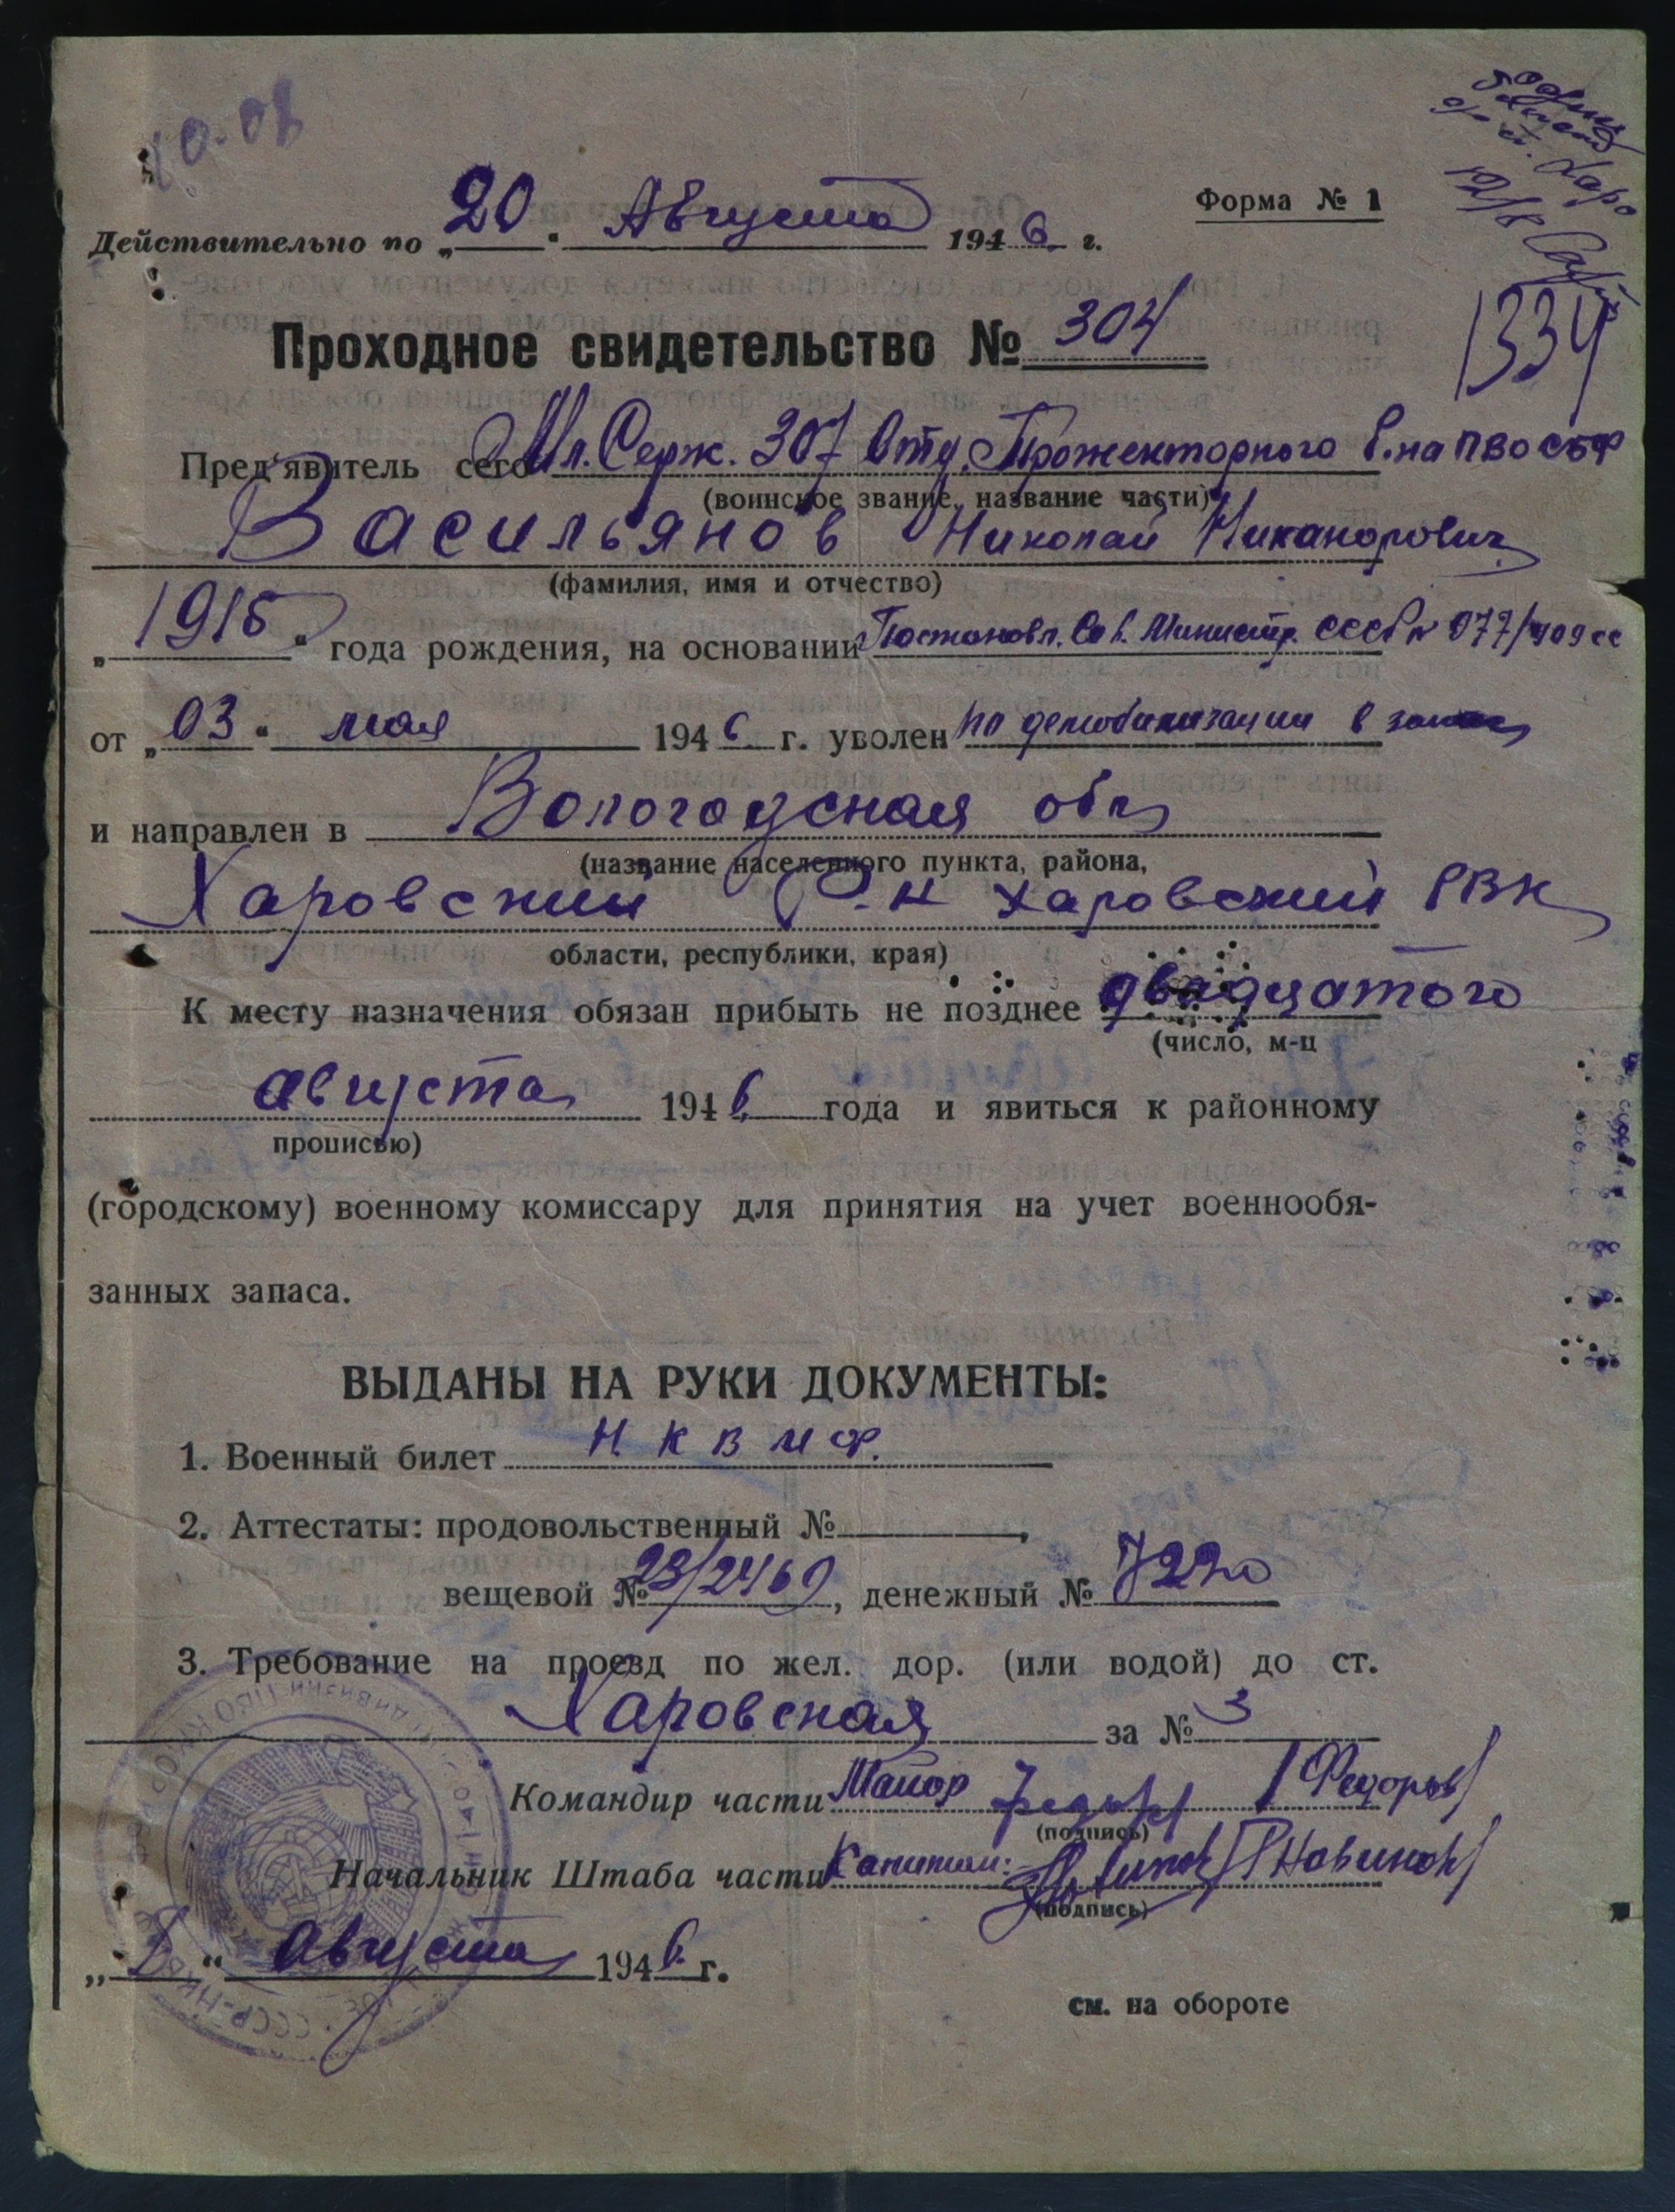 10.08
Форма № 1
Действительно по „20“ Августа 1946 г.
12/8
1334
Проходное свидетельство № 304
Пред'явитель сего Мл. Серж. 307 Отд. Прожекторного б.на ПВО СВФ
(воинское звание, название части)
Васильянов Николай Никанорович
(фамилия, имя и отчество)
„1915“ года рождения, на основании Постановл. Сов. Министр. СССР № 977/409сс
от „03“ мая 1946 г. уволен по демобилизации в запас
и направлен в Вологодская обл
(название населенного пункта, района,
Харовский Р-н Харовский РВК
области, республики, края)
К месту назначения обязан прибыть не позднее двадцатого
(число, м-ц
августа 1946 года и явиться к районному
прописью)
(городскому) военному комиссару для принятия на учет военнообя-
занных запаса.
ВЫДАНЫ НА РУКИ ДОКУМЕНТЫ:
1. Военный билет Н К В М Ф.
2. Аттестаты: продовольственный №
вещевой № 23/2469, денежный № 7220
3. Требование на проезд по жел. дор. (или водой) до ст.
Харовская за № 3
Командир части Майор /Федоров/
(подпись)
Начальник Штаба части Капитан: /Новиков/
(подпись)
„8“ Августа 1946 г.
см. на обороте